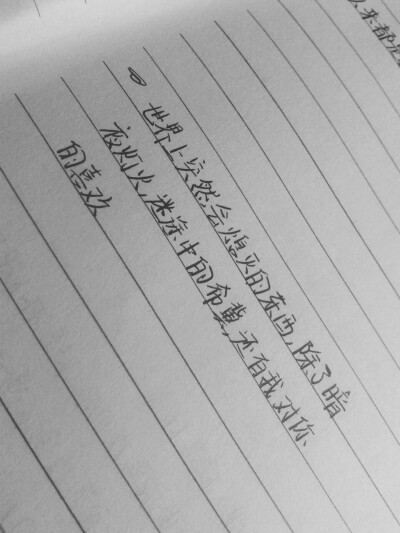 以来都是
世界上突然会熄灭的东西,除了暗
夜灯火,迷途中的希冀,还有我对你
的喜欢